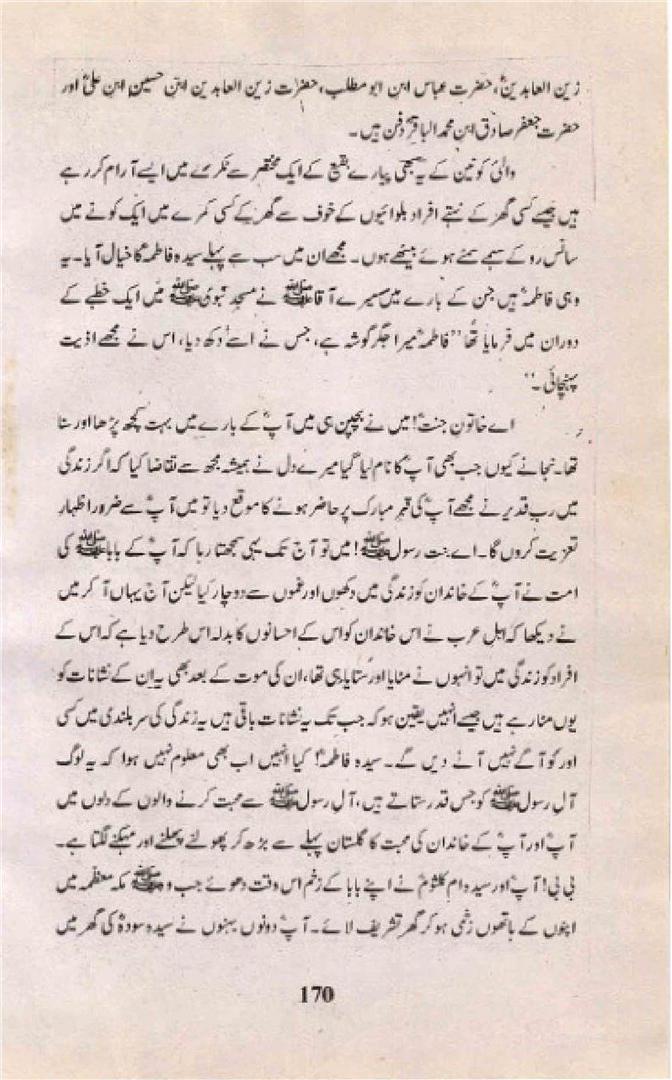 زین العابدینؓ، حضرت عباس ابن ابو مطلب، حضرات زین العابدین ابن حسین ابن علیؓ اور
حضرت جعفر صادق ابن محمد الباقرؓ دفن ہیں۔
والیٔ کونین کے یہ سبھی پیارے بقیع کے ایک مختصر سے ٹکڑے میں ایسے آرام کر رہے
ہیں جیسے کسی گھر کے نہتے افراد بلوائیوں کے خوف سے گھر کے کسی کمرے میں ایک کونے میں
سانس روکے سہمے سمٹے ہوئے بیٹھے ہوں۔ مجھے ان میں سب سے پہلے سیدہ فاطمہؓ کا خیال آیا۔ یہ
وہی فاطمہؓ ہیں جن کے بارے میں میرے آقا ﷺ نے مسجد نبوی ﷺ میں ایک خطبے کے
دوران میں فرمایا تھا ’’فاطمہؓ میرا جگر گوشہ ہے، جس نے اسے دکھ دیا، اس نے مجھے اذیت
پہنچائی۔‘‘
اے خاتونِ جنتؓ! میں نے بچپن ہی میں آپؓ کے بارے میں بہت کچھ پڑھا اور سنا
تھا۔ نجانے کیوں جب بھی آپؓ کا نام لیا گیا میرے دل نے ہمیشہ مجھ سے تقاضا کیا کہ اگر زندگی
میں ربِ قدیر نے مجھے آپؓ کی قبرِ مبارک پر حاضر ہونے کا موقع دیا تو میں آپؓ سے ضرور اظہارِ
تعزیت کروں گا۔ اے بنت رسول ﷺ! میں تو آج تک یہی سمجھتا رہا کہ آپؓ کے بابا ﷺ کی
امت نے آپؓ کے خاندان کو زندگی میں دکھوں اور غموں سے دوچار کیا لیکن آج یہاں آ کر میں
نے دیکھا کہ اہل عرب نے اس خاندان کو اس کے احسانوں کا بدلہ اس طرح دیا ہے کہ اس کے
افراد کو زندگی میں تو انہوں نے مٹایا اور ستایا ہی تھا، ان کی موت کے بعد بھی یہ ان کے نشانات کو
یوں مٹا رہے ہیں جیسے انہیں یقین ہو کہ جب تک یہ نشانات باقی ہیں یہ زندگی کی سربلندی میں کسی
اور کو آگے نہیں آنے دیں گے۔ سیدہ فاطمہؓ! کیا انہیں اب بھی معلوم نہیں ہوا کہ یہ لوگ
آل رسول ﷺ کو جس قدر ستاتے ہیں، آلِ رسول ﷺ سے محبت کرنے والوں کے دلوں میں
آپؓ اور آپؓ کے خاندان کی محبت کا گلستان پہلے سے بڑھ کر پھولنے پھلنے اور مہکنے لگتا ہے۔
بی بی! آپؓ اور سیدہ ام کلثومؓ نے اپنے بابا کے زخم اس وقت دھوئے جب وہ ﷺ مکہ معظمہ میں
اپنوں کے ہاتھوں زخمی ہو کر گھر تشریف لائے۔ آپؓ دونوں بہنوں نے سیدہ سودہؓ کی گھر میں
170